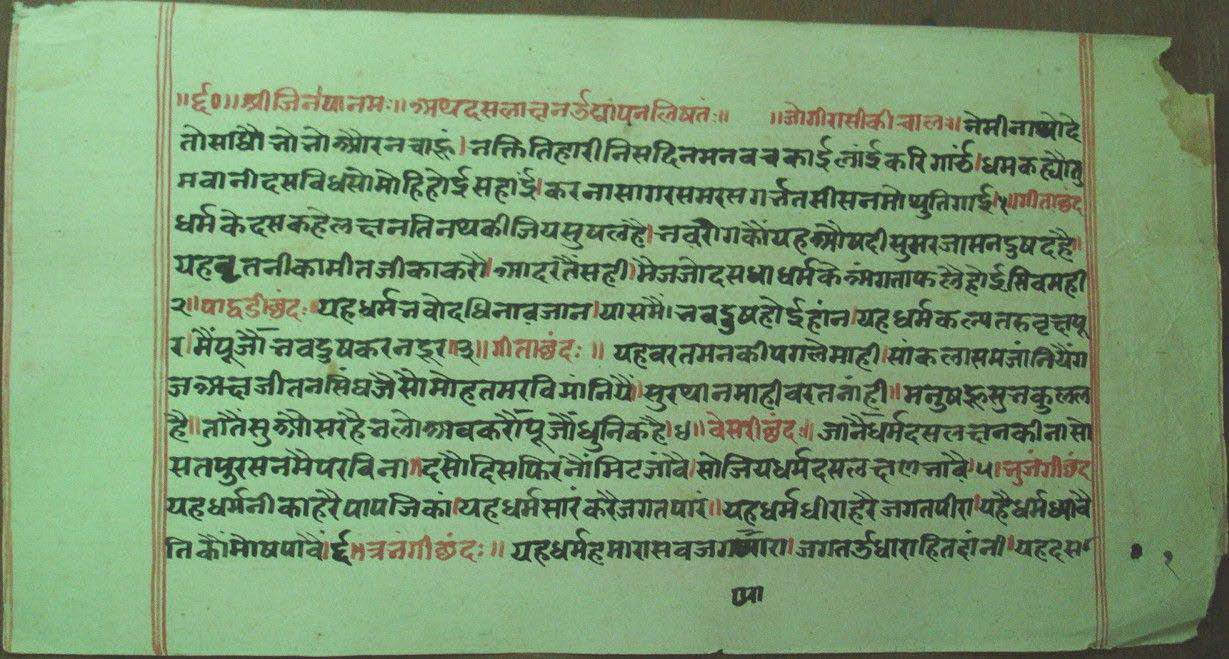 ॥र्द्द०॥श्रीजिनायनमः॥अथदसलाछनउद्यापनलिषतं॥ ॥जोगीरासीकीचाल॥नेमीना
तो औरनचाहूं।नक्तितिहारीनिसदिनमनवचकाईलांईकरिगांऊं।धमकह्यौतु
मवानीदसविधसोमोहिहोईसहांई।करनासागरसमरस सीसनमो गाई।१॥गीताछंद
धर्मकेदसकहेलछनतिनथकीजियसुषलहै।नवरोगकौंयहऔषदीसुमरजामनदुषदहै॥
यह तनीकामीतजीकाकरौ।आदरतैंसही।मैजजोदसधाधर्मके फलैहोईसिवमही
२॥पाद्धडीछंदः॥यहधर्मनवोदधिनावजान।यासेमैं।नवदुषहोईहांन।यहधर्मकल्पतरुवृछपू
र।मैंपूजौंनवदुषकरनदूर।३॥गीताछंदः॥ यहवरतमनकीपगलैमाही।सांकलासमजांनियैंग
जअछजीतनसिंघजैसौमोहतमरविमांनियैं।सुरथानमाहीवरतनांही॥मनुषहूसुनकुलल
है॥तातैंसुऔसरहैनलोअवकरौंपूजौंधुनिकहै।४॥वेसरीछंदः॥जानैधर्मदसलछनकीनासो
सतपुरसनमैपरविना॥दसौदिसफिरनौंमिटजांवै।सोजियधर्मदसलछणनावै।५।नुजंगीछंद
यहधर्मनीकाहरैपापजिकां।यहधर्मसारंकरैजगतपारं॥यहधर्मधीराहरैजगतपीरा।यहैधर्मध्यावै
तिकौंमोषपावैं।र्द्द॥त्रनंगीछंदः॥ यहधर्महमारासवजग ।जगतउधाराहितदांनी।यहदस
१
प्पा